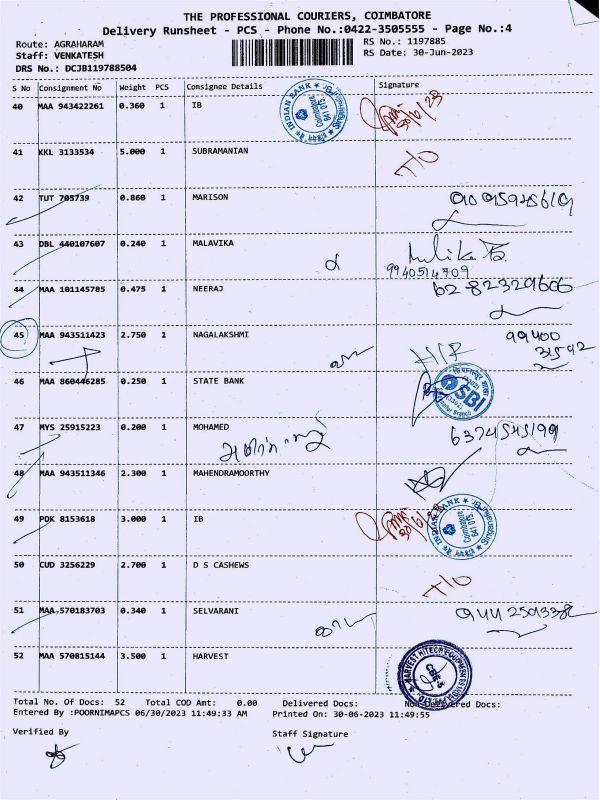 THE PROFESSIONAL COURIERS, COIMBATORE
Delivery Runsheet - PCS - Phone No.:0422-3505555 - Page No.:4
Route: AGRAHARAM RS No.: 1197885
Staff: VENKATESH RS Date: 30-Jun-2023
DRS No.: DCJB119788504
S No Consignment No Weight PCS Consignee Details Signature
40 MAA 943422261 0.360 1 IB
INDIAN BANK
Coimbatore
641 015
30/6/23
41 KKL 3133534 5.000 1 SUBRAMANIAN T/O
42 TUT 705739 0.860 1 MARISON
43 DBL 440107607 0.240 1 MALAVIKA
9940514709
44 MAA 101145785 0.475 1 NEERAJ 6282329606
45 MAA 943511423 2.750 1 NAGALAKSHMI 99400
46 MAA 860446285 0.250 1 STATE BANK
SBI
47 MYS 25915223 0.200 1 MOHAMED
48 MAA 943511346 2.300 1 MAHENDRAMOORTHY
49 PDK 8153618 3.000 1 IB
INDIAN BANK
Coimbatore
641 015
50 CUD 3256229 2.700 1 D S CASHEWS T/O
51 MAA 570183703 0.340 1 SELVARANI
52 MAA 570815144 3.500 1 HARVEST
HARVEST HITECH EQUIPMENTS
Total No. Of Docs: 52 Total COD Amt: 0.00 Delivered Docs: Non-Delivered Docs:
Entered By :POORNIMAPCS 06/30/2023 11:49:33 AM Printed On: 30-06-2023 11:49:55
Verified By Staff Signature